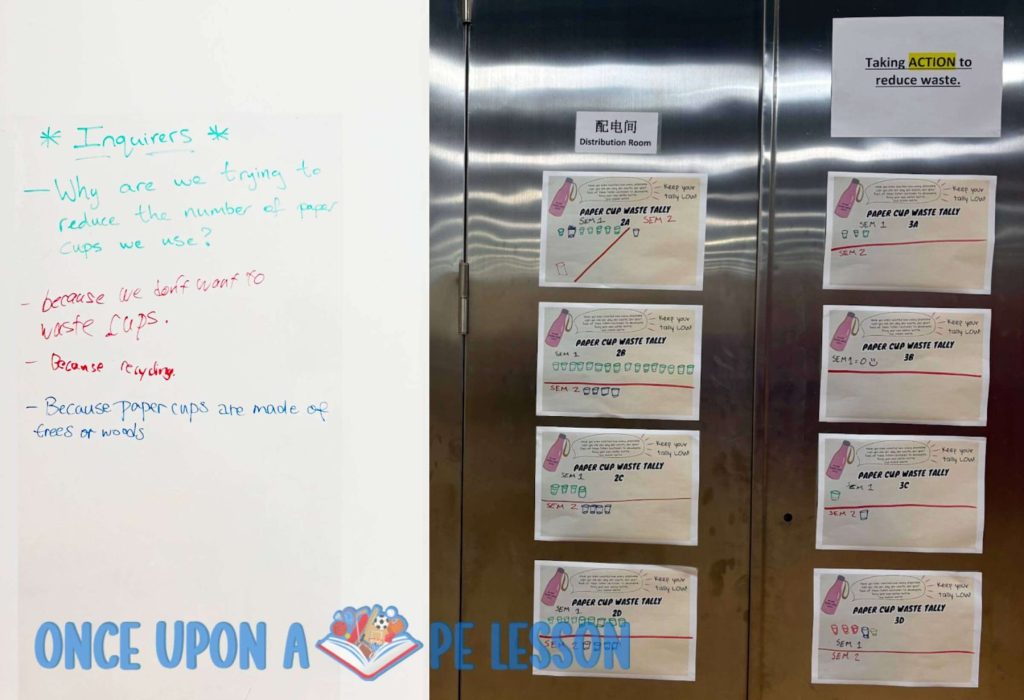 * Inquirers *
- Why are we trying to
reduce the number of paper
cups we use?
- because we don't want to
waste cups.
- Because recycling.
- Because paper cups are made of
trees or woods
配电间
Distribution Room
Taking ACTION to
reduce waste.
Keep your
tally LOW!
PAPER CUP WASTE TALLY
SEM 1 2A SEM 2
Keep your
tally LOW!
PAPER CUP WASTE TALLY
SEM 1 2B
SEM 2
Keep your
tally LOW!
PAPER CUP WASTE TALLY
SEM 1 2C
SEM 2
Keep your
tally LOW!
PAPER CUP WASTE TALLY
SEM 1 2D
SEM 2
Keep your
tally LOW!
PAPER CUP WASTE TALLY
SEM 1 3A
SEM 2
Keep your
tally LOW!
PAPER CUP WASTE TALLY
SEM 1 = 0 3B
Keep your
tally LOW!
PAPER CUP WASTE TALLY
SEM 1 3C
SEM 2
Keep your
tally LOW!
PAPER CUP WASTE TALLY
3D
SEM 1
SEM 2
ONCE UPON A PE LESSON